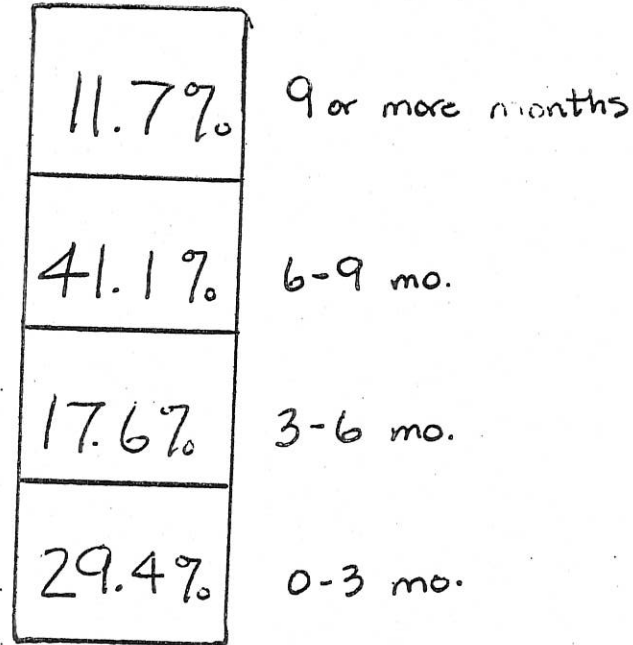 11.7% 9 or more months
41.1% 6-9 mo.
17.6% 3-6 mo.
29.4% 0-3 mo.